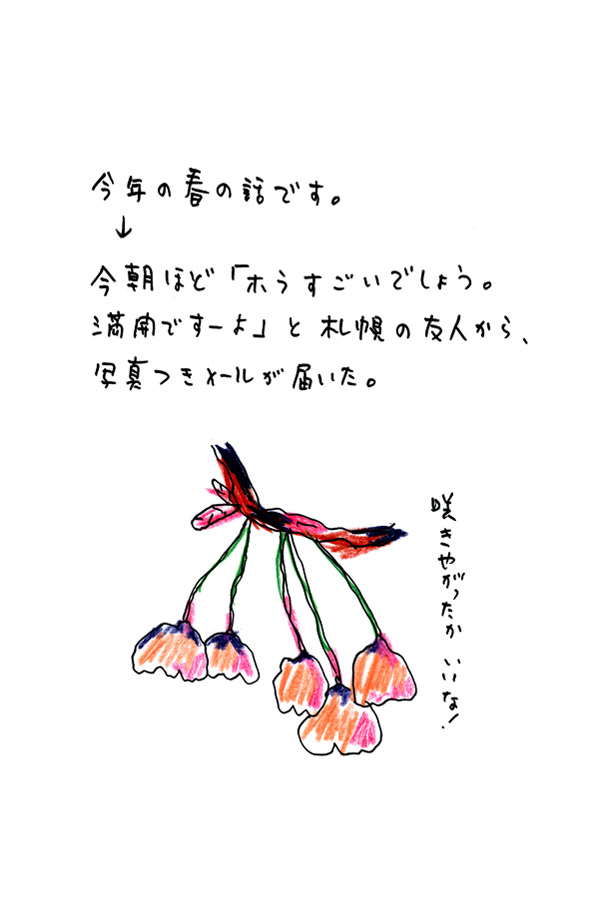 今年の春の話です。
↓
今朝ほど「ホラすごいでしょう。
満開ですーよ」と札幌の友人から、
写真つきメールが届いた。
咲きやがったか いいな!